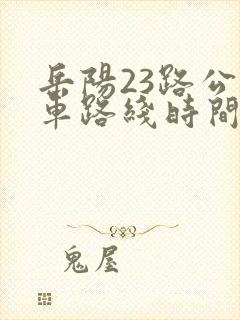 岳陽23路公
車路綫時間
鬼屋